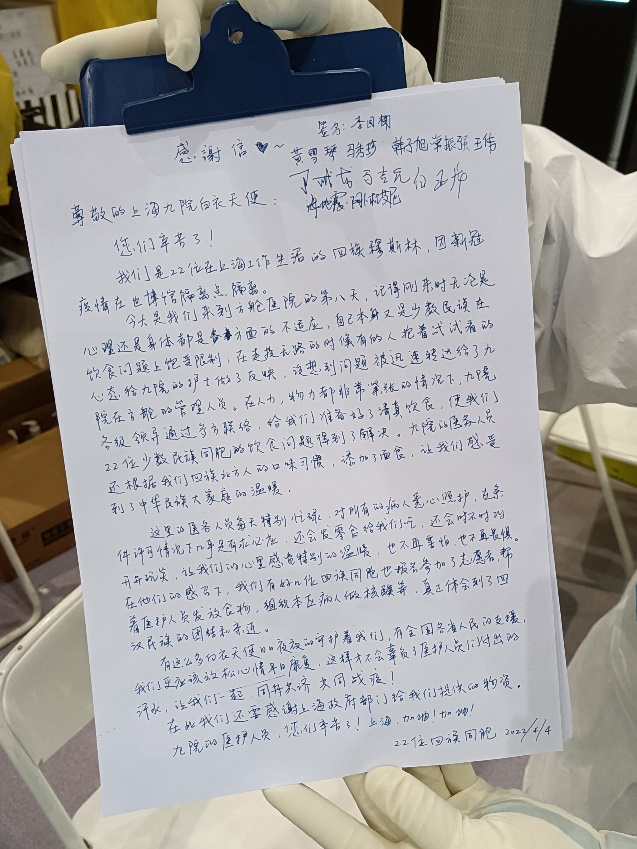 签名: 李国栋
感謝信♥~
黄 马秀珍 韩子旭 常振强 王伟
马克元 白
尊敬的上海九院白衣天使:
您们辛苦了!
我们是22位在上海工作生活的回族穆斯林,因新冠
疫情在世博馆隔离点隔离。
今天是我们来到方舱医院的第八天,记得刚来时无论是
心理还是身体都是各方面的不适应,自己本身又是少数民族在
饮食问题上饱受限制,在走投无路的时候有的人抱着试试看的
心态给九院的护士做了反映,没想到问题被迅速转达给了九
院在方舱的管理人员。在人力,物力都非常紧张的情况下,九院
各级领导通过多方联络,给我们准备好了清真饮食,使我们
22位少数民族同胞的饮食问题得到了解决。九院的医务人员
还根据我们回族北方人的口味习惯,添加了面食,让我们感受
到了中华民族大家庭的温暖。
这里的医务人员每天特别忙碌,对所有的病人悉心照护,在条
件许可情况下几乎是有求必应,还会发零食给我们吃,还会时不时的
开开玩笑,让我们的心里感觉特别的温暖,也不再害怕,也不再畏惧。
在他们的感召下,我们有好几位回族同胞也报名参加了志愿者,帮
着医护人员发放食物,组织本区病人做核酸等,真正体会到了回
汉民族的团结和亲近。
有这么多白衣天使日日夜夜的守护着我们,有全国各省人民的支援,
我们更应该放松心情早日康复,这样才不会辜负了医护人员们付出的
汗水,让我们一起 同舟共济 共同战疫!
在此我们还要感谢上海政府部门给我们提供的物资。
九院的医护人员,您们辛苦了!上海,加油!加油!
22位回族同胞 2022/4/4